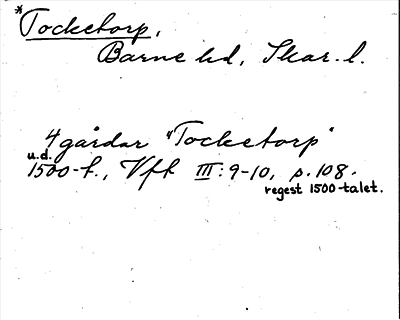 *Tocketorp,
Barne hd, Skar. l.
4 gårdar "Tocketorp"
u.d.
1500-t., Vft III: 9-10, s. 108.
regest 1500-talet.